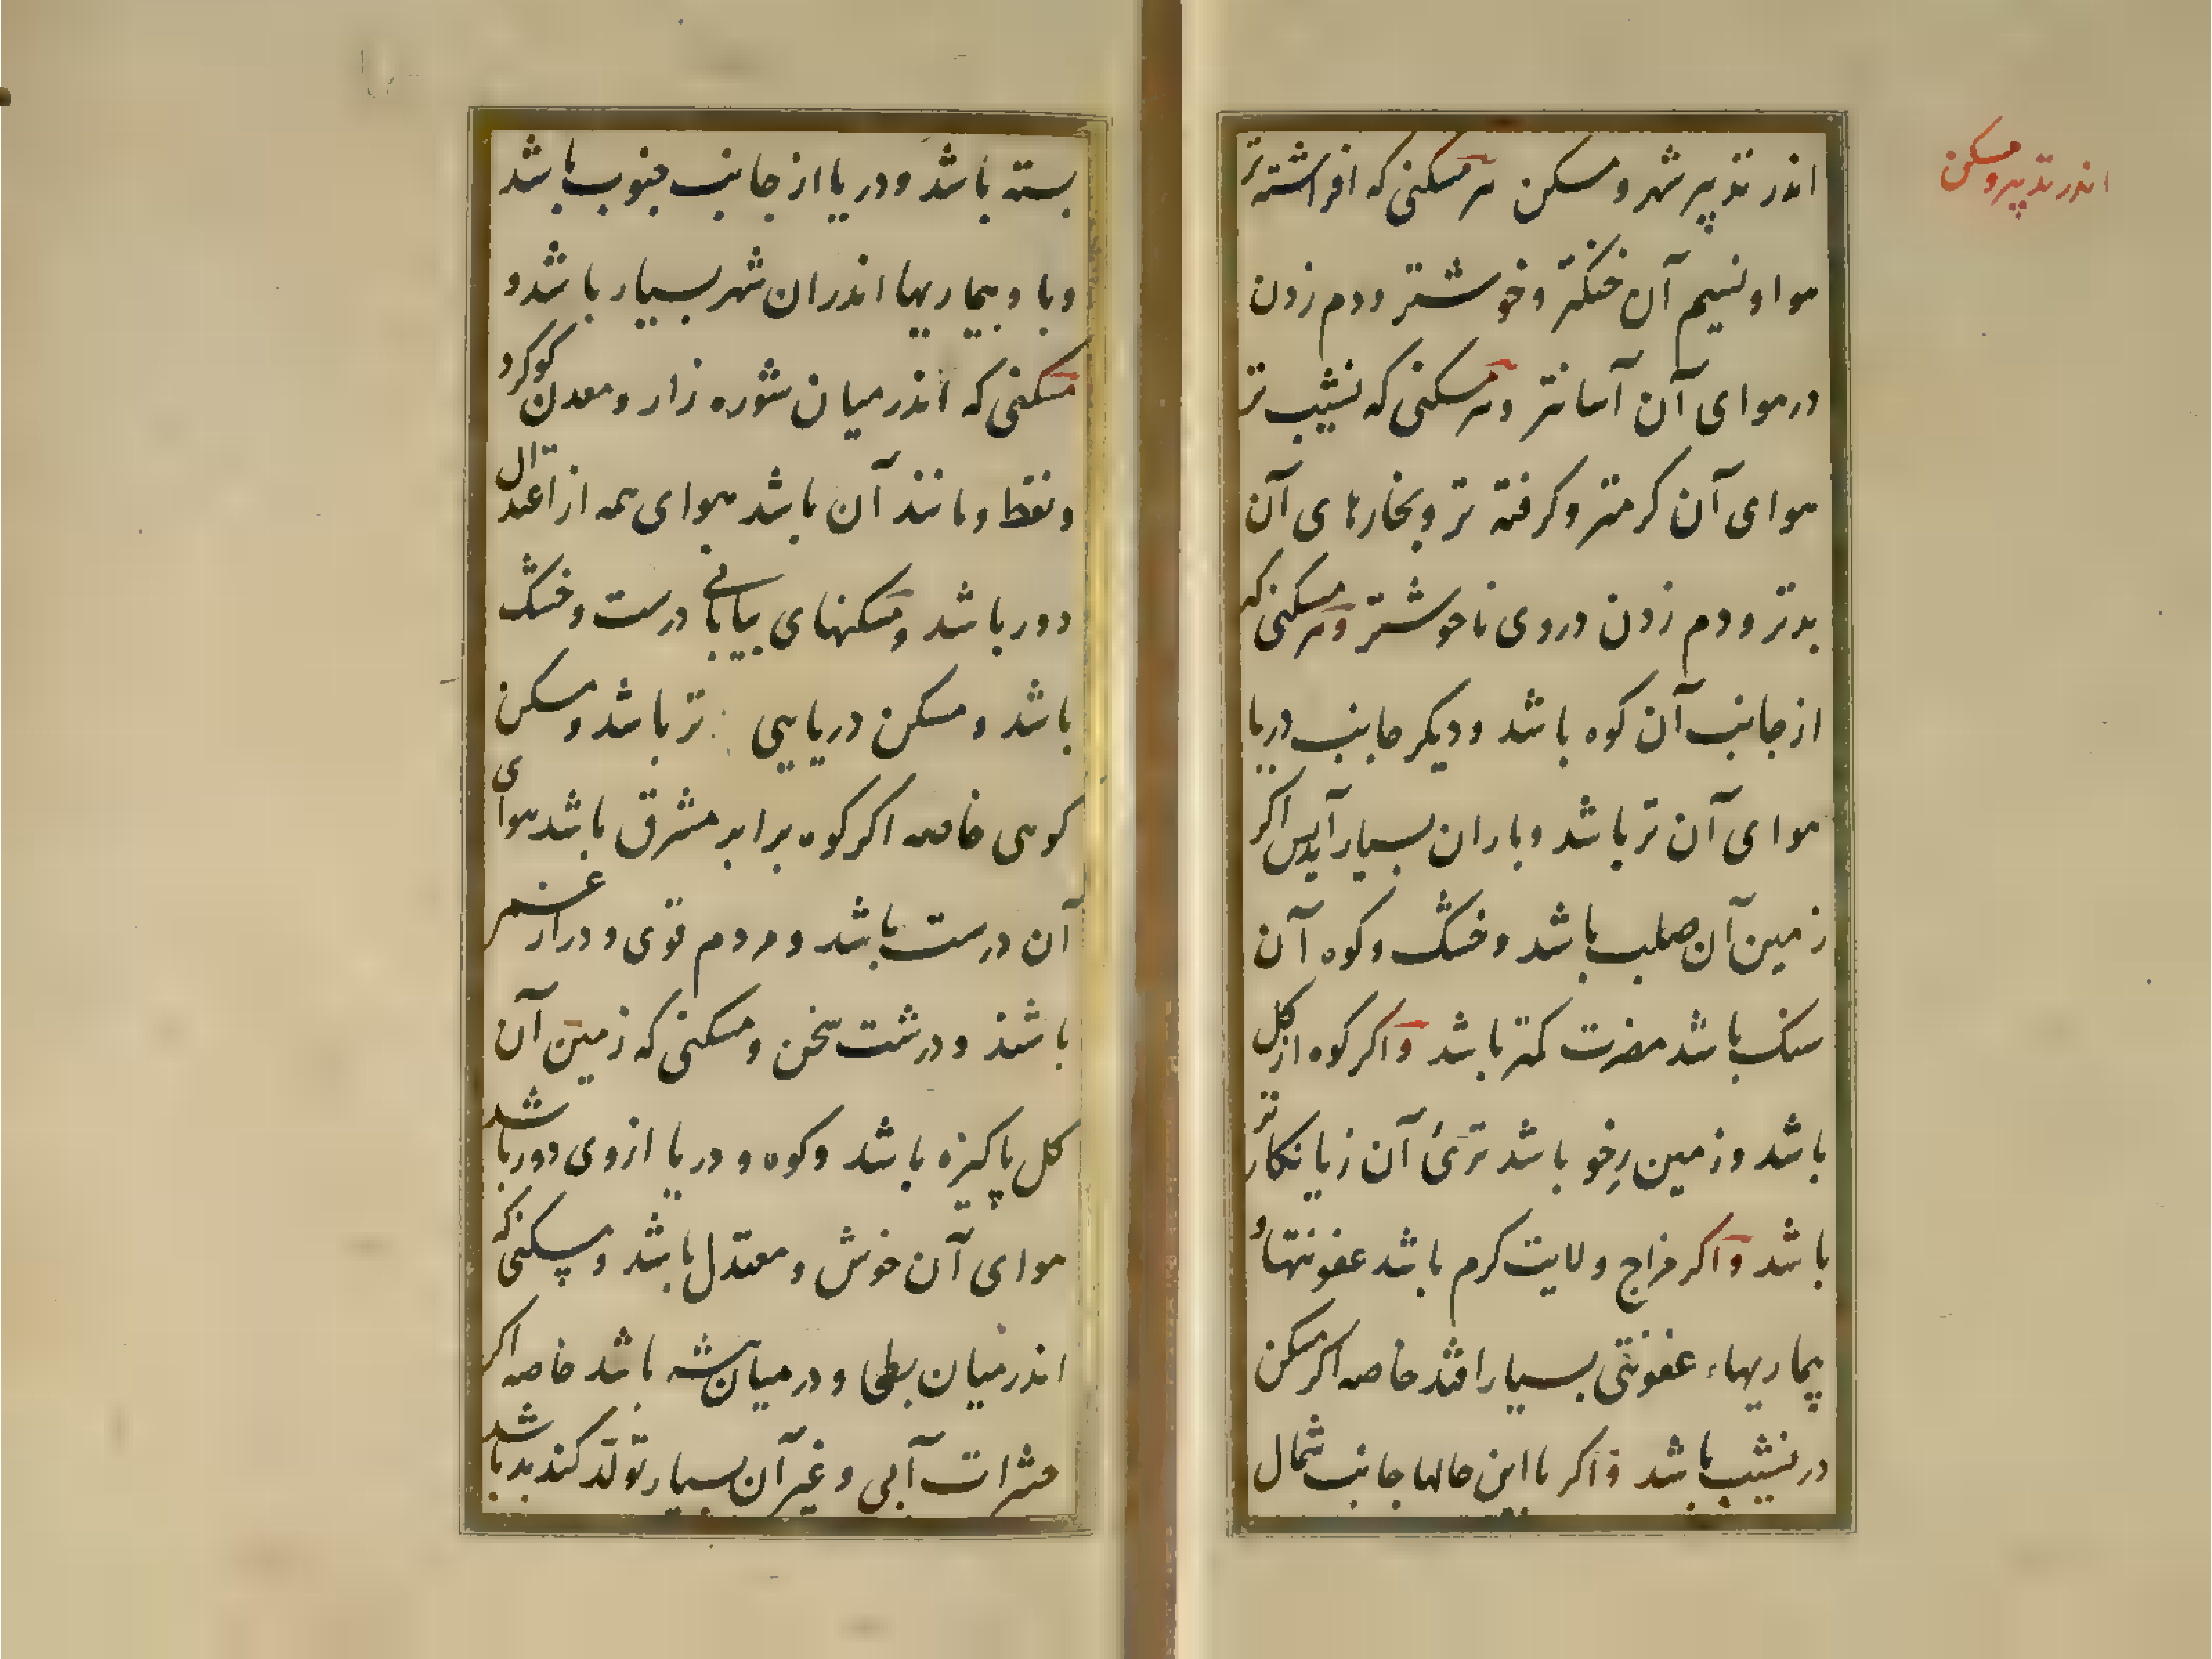 اندر تدبیر و مسکن
اندر تدبیر شهر و مسکن هر مسکنی که افراشته تر
هوا و نسیم آن خنکتر و خوشتر و دم زدن
در هوای آن آسانتر و هر مسکنی که نشیب تر
هوای آن کرمتر و کرفته تر و بخارهای آن
بدتر و دم زدن در وی ناخوشتر و هر مسکنی که
از جانب آن کوه باشد و دیکر جانب دریا
هوای آن تر باشد و باران بسیار آید پس اکر
زمین آن صلب باشد و خشک و کوه آن
سنک باشد مضرت کمتر باشد و اکر کوه از کل
باشد و زمین رخو باشد ترئ آن زیانکارتر
باشد و اکر مزاج ولایت کرم باشد عفونتها و
بیماریهاء عفونتی بسیار افتد خاصه اکر مسکن
در نشیب باشد و اکر با این حالها جانب شمال
بسته باشد و دریا از جانب جنوب باشد
وبا و بیماریها اندران شهر بسیار باشد و
مسکنی که اندر میان شوره زار و معدن کوکرد
و نفط و مانند آن باشد هوای همه از اعتدال
دور باشد و مسکنهای بیابانی درست و خشک
باشد و مسکن دریایی تر باشد و مسکن
کوهی خاصه اکر کوه برابر مشرق باشد هوای
آن درست باشد و مردم قوی و دراز عمر
باشند و درشت سخن و مسکنی که زمین آن
کل پاکیزه باشد و کوه و دریا از وی دور باشد
هوای آن خوش و معتدل باشد و مسکنی که
اندر میان بطی و در میان بیشه باشد خاصه اکر
حشرات آبی و غیر آن بسیار تولّد کند بد باشد